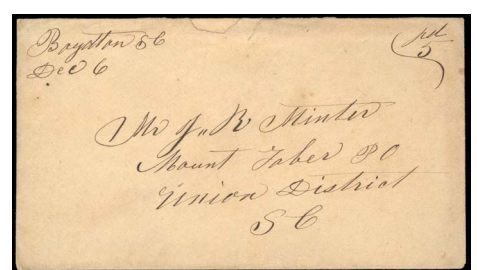 Boydton SC
Dec 6
pd
5
Mr J. R Minter
Mount Taber PO
Union District
SC